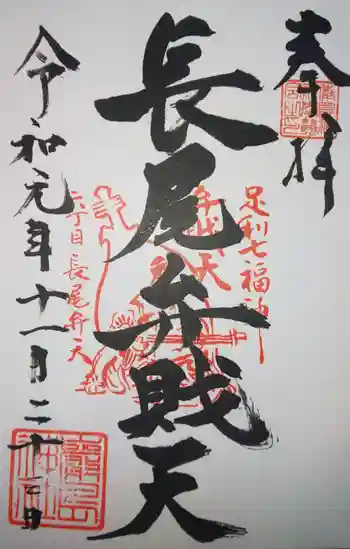 奉拝
長尾弁財天
令和元年十一月二十三日
足利七福神
弁財天
六丁目長尾弁天